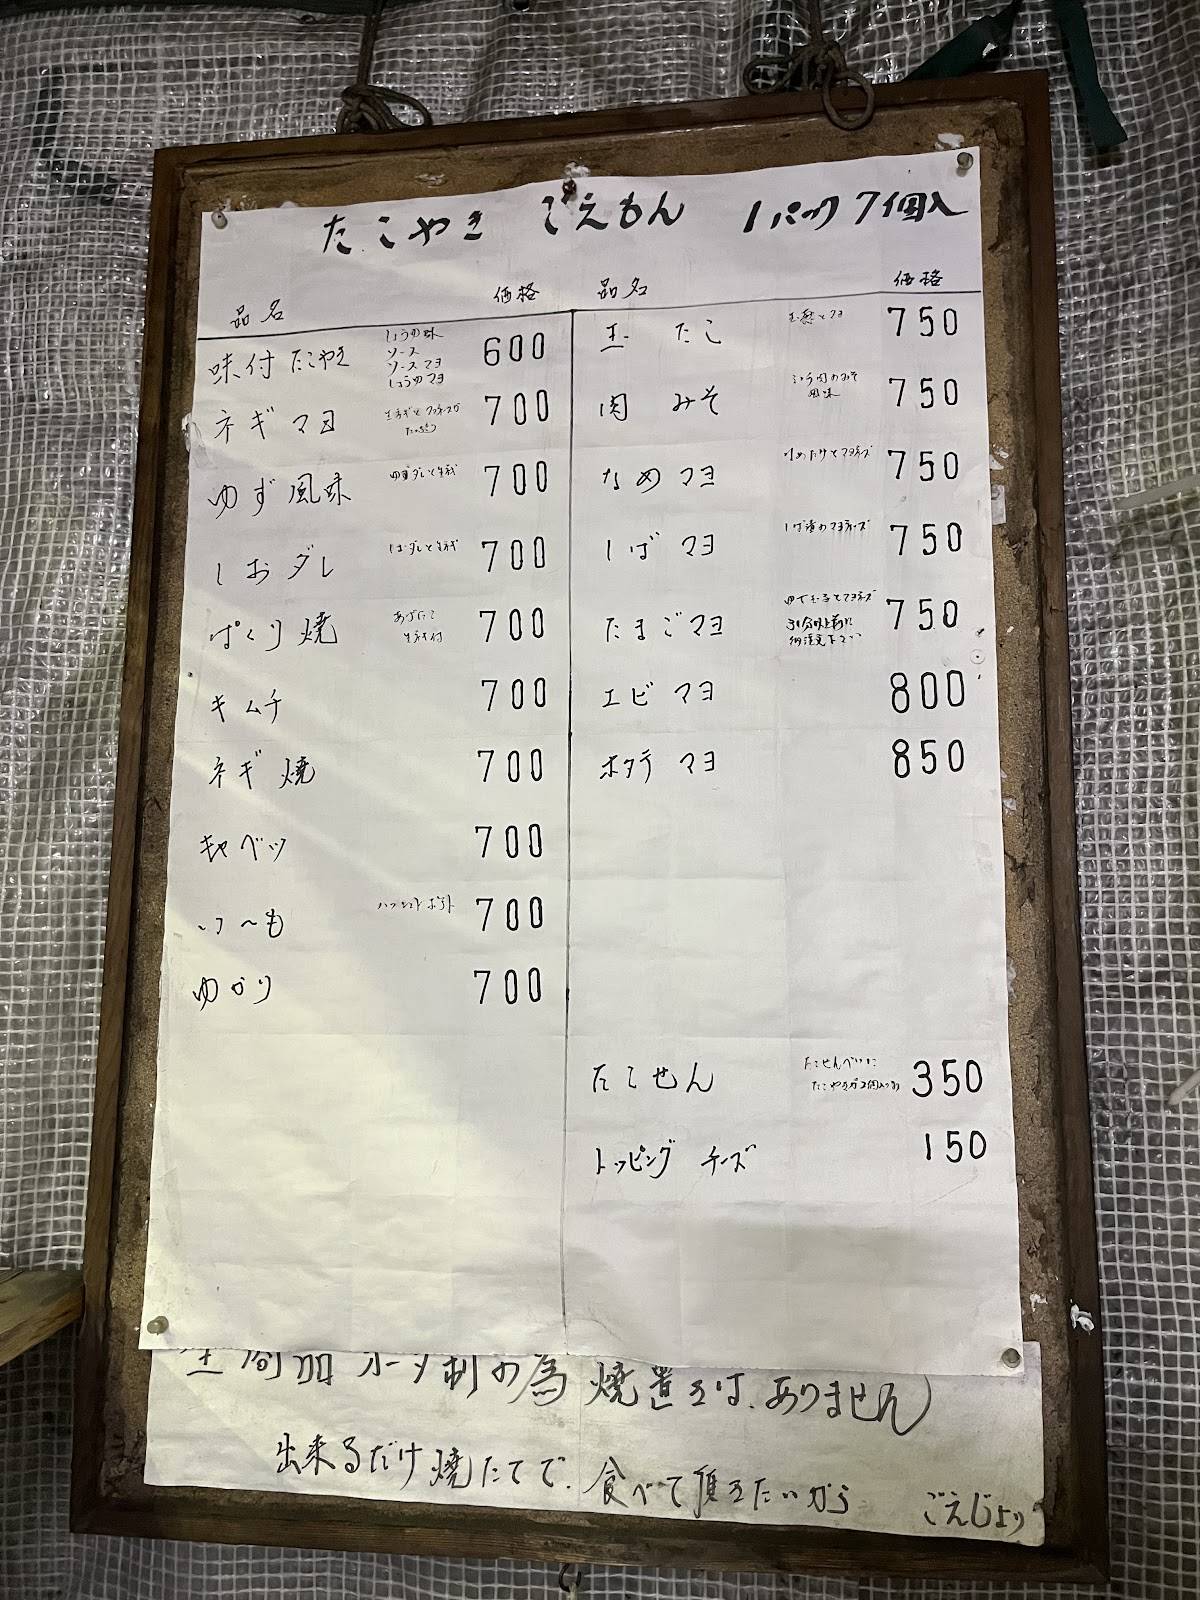 たこやき ごえもん 1パック7個入
品名 価格 品名 価格
味付たこやき しょうゆ味 ソース ソースマヨ しょうゆマヨ 600
ネギマヨ 700
ゆず風味 700
しおダレ 700
ぱくり焼 700
キムチ 700
ネギ焼 700
キャベツ 700
いつ〜も ハッシュドポテト 700
ゆかり 700
玉たこ 750
肉みそ 750
なめマヨ なめたけとマヨネーズ 750
しばマヨ しば漬のマヨネーズ 750
たまごマヨ ゆで玉子とマヨネーズ 750
エビマヨ 800
ホタテマヨ 850
たこせん たこせんべいに たこやきが2個入つ 350
トッピングチーズ 150
全商品オーダ制の為焼置きはありません
出来るだけ焼たてで、食べて頂きたいから ごえじょり